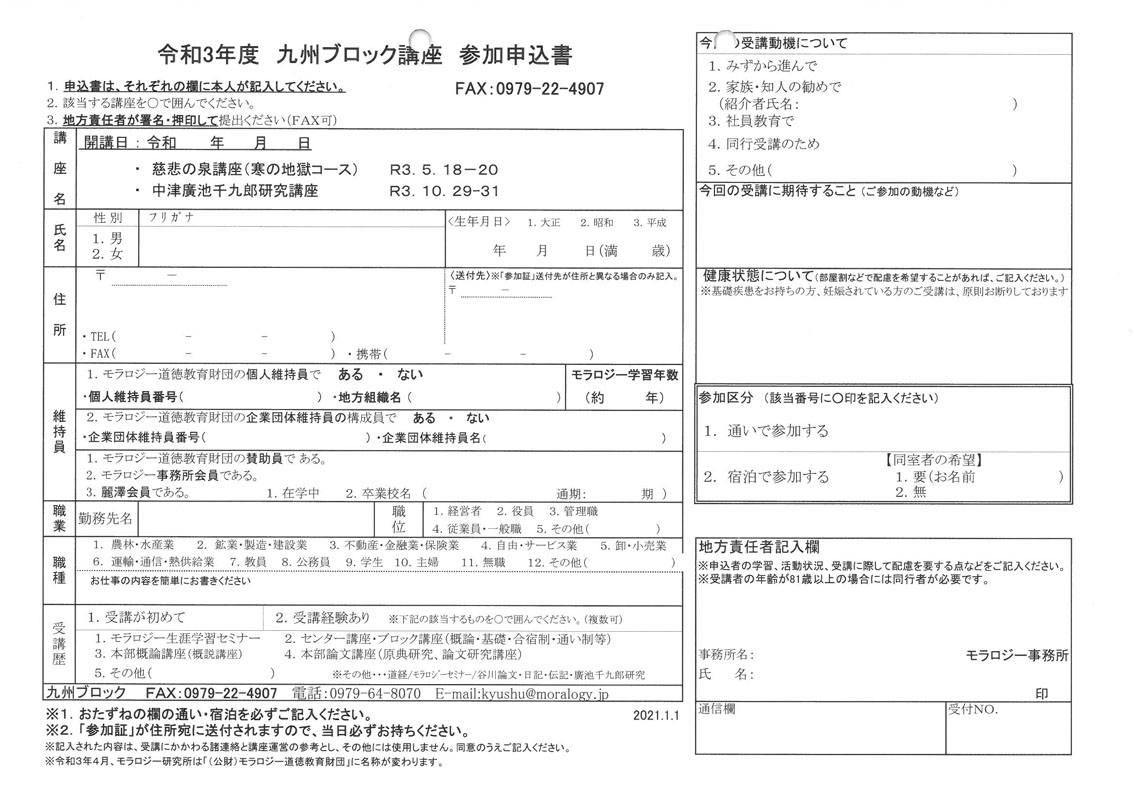 令和3年度 九州ブロック講座 参加申込書
1. 申込書は、それぞれの欄に本人が記入してください。
FAX:0979-22-4907
2. 該当する講座を○で囲んでください。
3. 地方責任者が署名・押印して提出ください(FAX可)
講座名
開講日:令和 年 月 日
・ 慈悲の泉講座(寒の地獄コース) R3. 5. 18-20
・ 中津廣池千九郎研究講座 R3. 10. 29-31
氏名
性別
1. 男
2. 女
フリガナ
<生年月日> 1. 大正 2. 昭和 3. 平成
年 月 日(満 歳)
住所
〒 -
〈送付先〉※「参加証」送付先が住所と異なる場合のみ記入。
〒 -
・TEL( - - )
・FAX( - - ) ・携帯( - - )
維持員
1. モラロジー道徳教育財団の個人維持員で ある ・ ない
・個人維持員番号( ) ・地方組織名( )
モラロジー学習年数
(約 年)
2. モラロジー道徳教育財団の企業団体維持員の構成員で ある ・ ない
・企業団体維持員番号( ) ・企業団体維持員名( )
1. モラロジー道徳教育財団の賛助員で ある。
2. モラロジー事務所会員である。
3. 麗澤会員である。 1. 在学中 2. 卒業校名 ( 通期: 期 )
職業
勤務先名
職位
1. 経営者 2. 役員 3. 管理職
4. 従業員・一般職 5. その他( )
職種
1. 農林・水産業 2. 鉱業・製造・建設業 3. 不動産・金融業・保険業 4. 自由・サービス業 5. 卸・小売業
6. 運輸・通信・熱供給業 7. 教員 8. 公務員 9. 学生 10. 主婦 11. 無職 12. その他( )
お仕事の内容を簡単にお書きください
受講歴
1. 受講が初めて
2. 受講経験あり ※下記の該当するものを○で囲んでください。(複数可)
1. モラロジー生涯学習セミナー 2. センター講座・ブロック講座(概論・基礎・合宿制・通い制等)
3. 本部概論講座(概説講座) 4. 本部論文講座(原典研究、論文研究講座)
5. その他( ) ※その他・・・道経/モラロジーセミナー/谷川論文・日記・伝記・廣池千九郎研究
九州ブロック FAX:0979-22-4907 電話:0979-64-8070 E-mail:kyushu@moralogy.jp
※1. おたずねの欄の通い・宿泊を必ずご記入ください。
2021.1.1
※2. 「参加証」が住所宛に送付されますので、当日必ずお持ちください。
※記入された内容は、受講にかかわる諸連絡と講座運営の参考とし、その他には使用しません。同意のうえご記入ください。
※令和3年4月、モラロジー研究所は「(公財)モラロジー道徳教育財団」に名称が変わります。
今 の受講動機について
1. みずから進んで
2. 家族・知人の勧めで
(紹介者氏名: )
3. 社員教育で
4. 同行受講のため
5. その他( )
今回の受講に期待すること (ご参加の動機など)
健康状態について(部屋割などで配慮を希望することがあれば、ご記入ください。)
※基礎疾患をお持ちの方、妊娠されている方のご受講は、原則お断りしております
参加区分 (該当番号に○印を記入ください)
1. 通いで参加する
2. 宿泊で参加する
【同室者の希望】
1. 要(お名前 )
2. 無
地方責任者記入欄
※申込者の学習、活動状況、受講に際して配慮を要する点などをご記入ください。
※受講者の年齢が81歳以上の場合には同行者が必要です。
事務所名: モラロジー事務所
氏 名:
印
通信欄
受付NO.